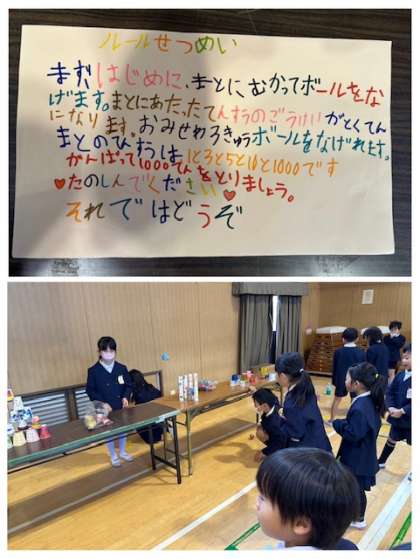 ルールせつめい
まず、はじめに、まとに、むかってボールをな
げます。まとにあたったてんすうのごうけいがとくてん
になります。おみせわろきゅうボールをなげれます。
まとのてんすうは1と3と5と10と1000です
がんばって1000てんをとりましょう。
♥たのしんでください♥
それではどうぞ